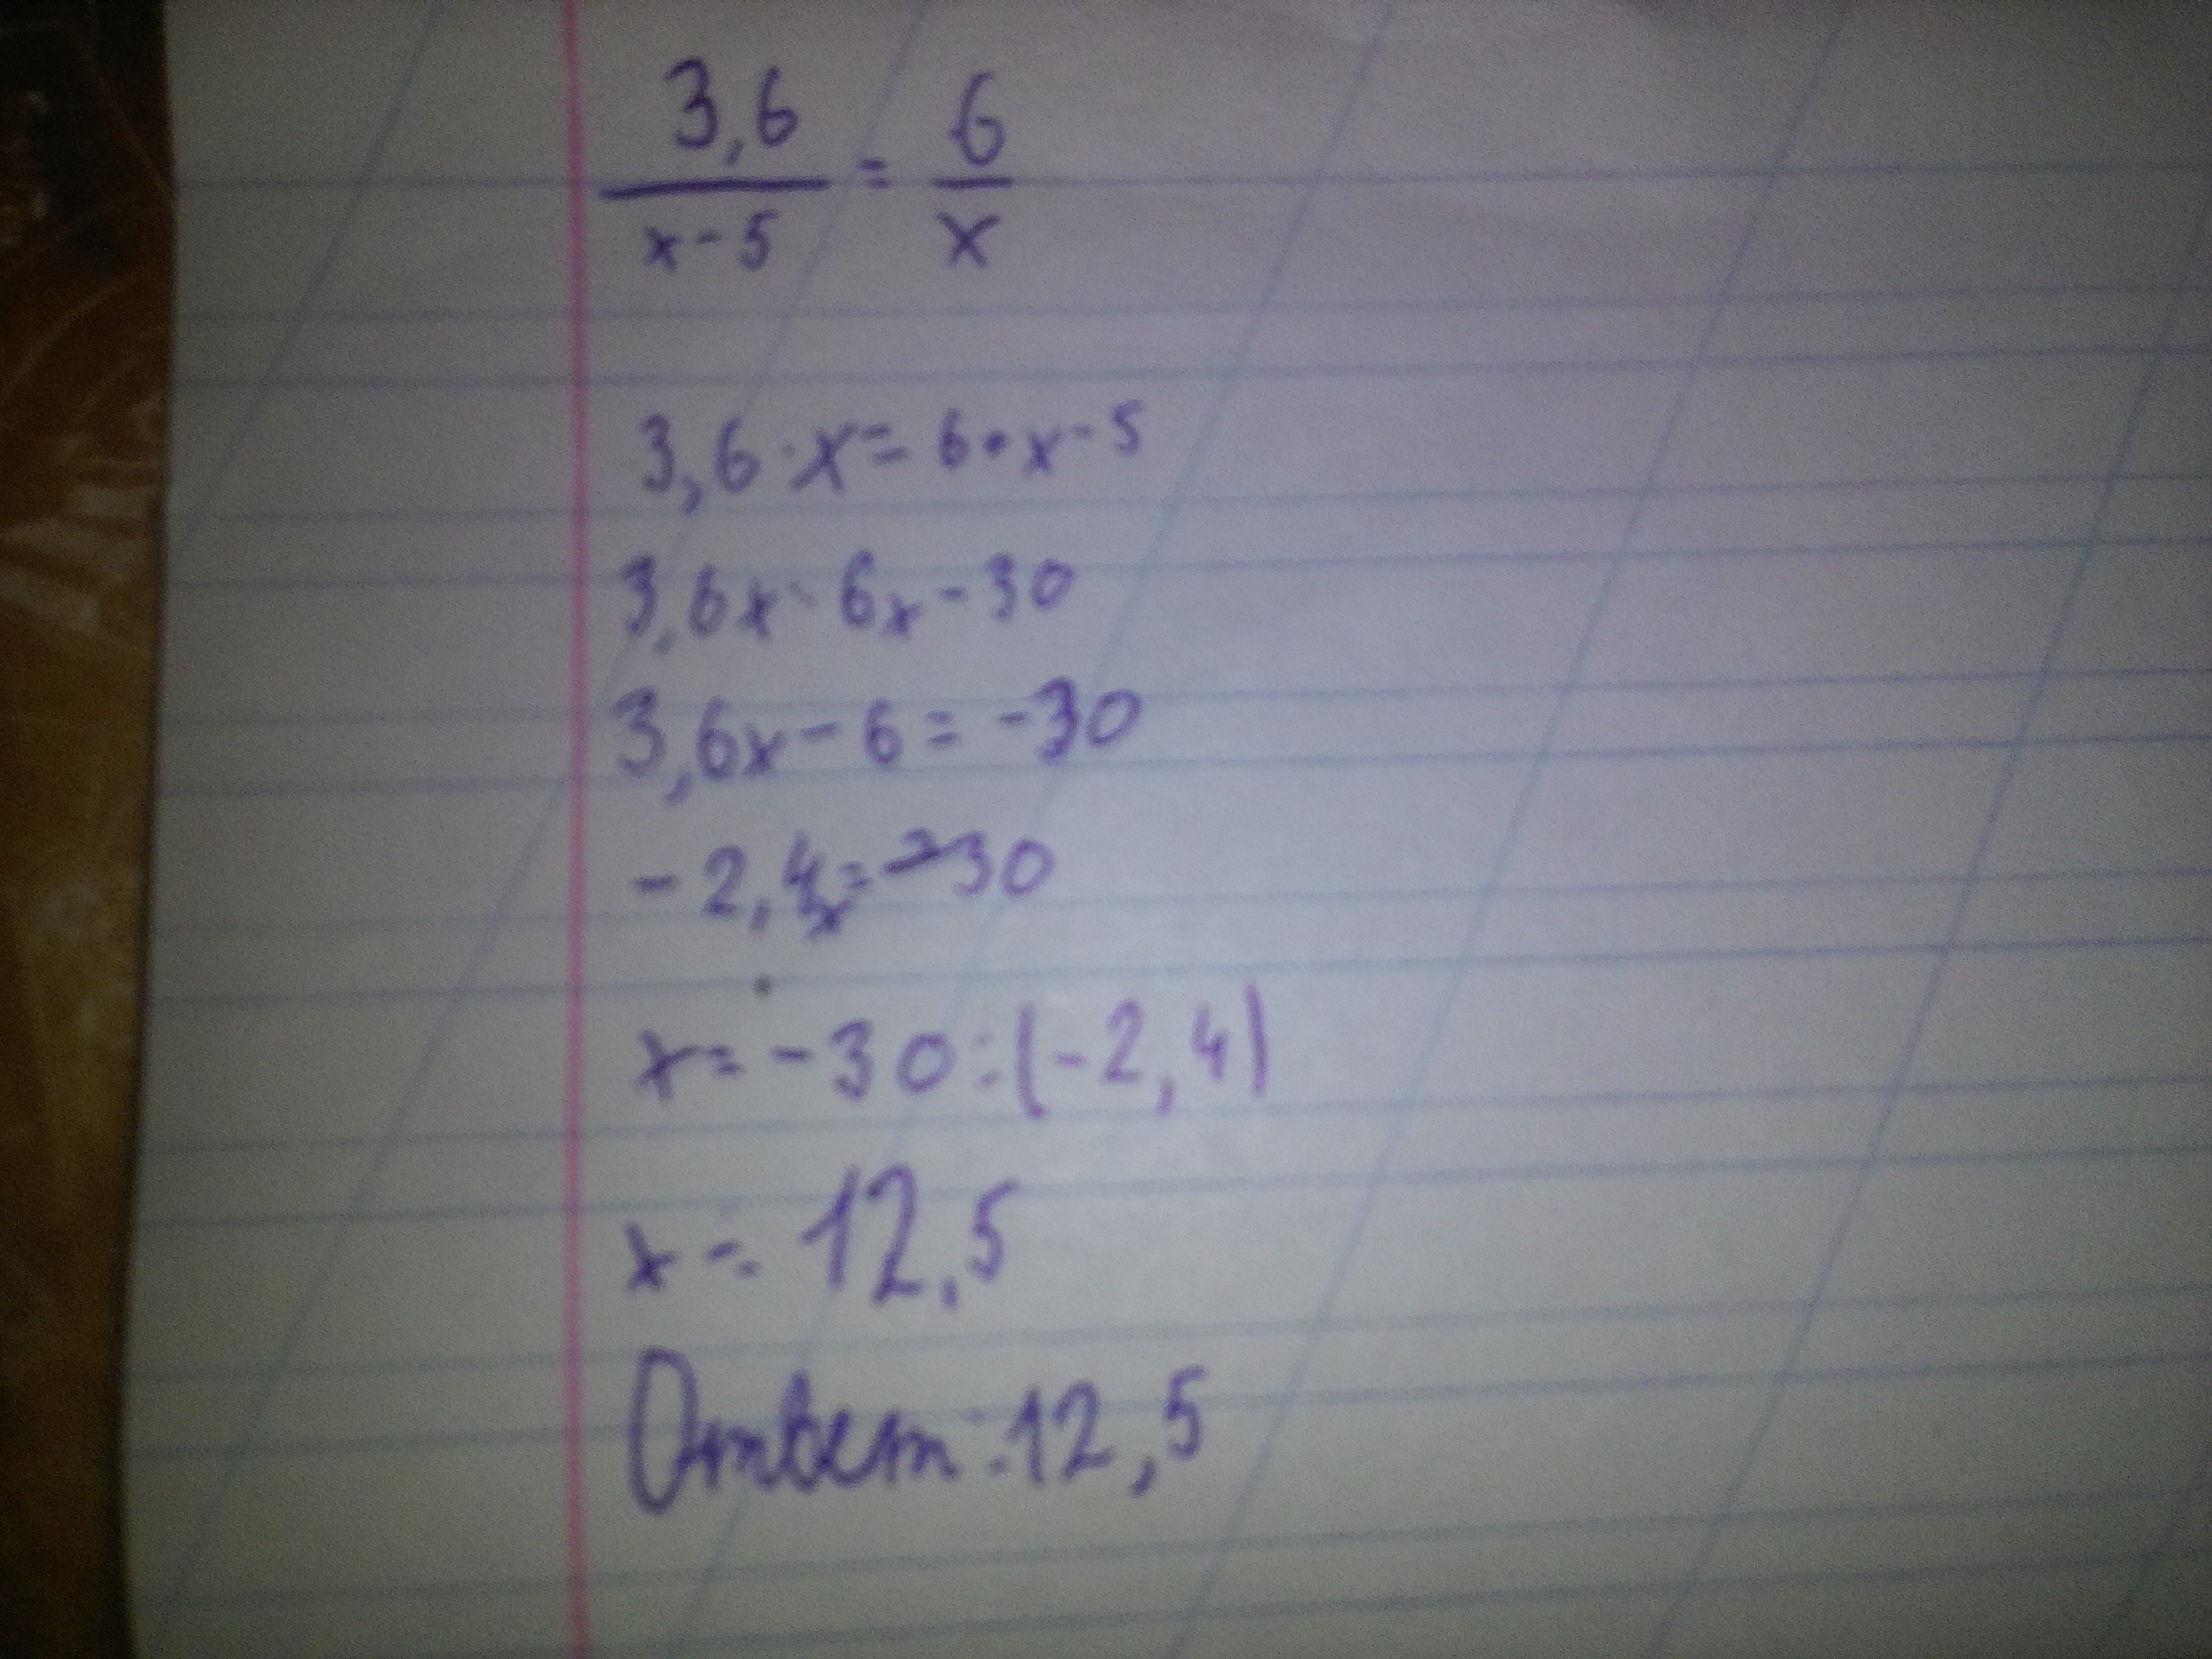 3,6/x-5 = 6/x
3,6·x=6·x-5
3,6x-6x-30
3,6x-6=-30
-2,4x=-30
x=-30:(-2,4)
x=12,5
Ответ:12,5